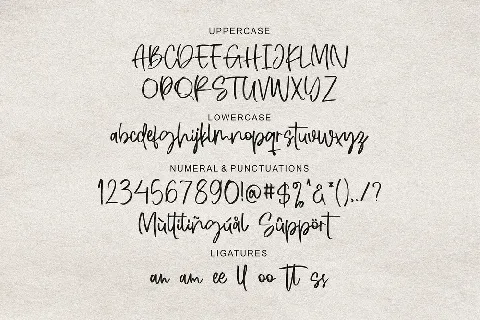 UPPERCASE
ABCDEFGHIJKLMN
OPQRSTUVWXYZ
LOWERCASE
abcdefghijklmnopqrstuvwxyz
NUMERAL & PUNCTUATIONS
1234567890!@#$%^&*()../?
Mùltilïñgúål Sûppört
LIGATURES
an am ee ll oo tt ss